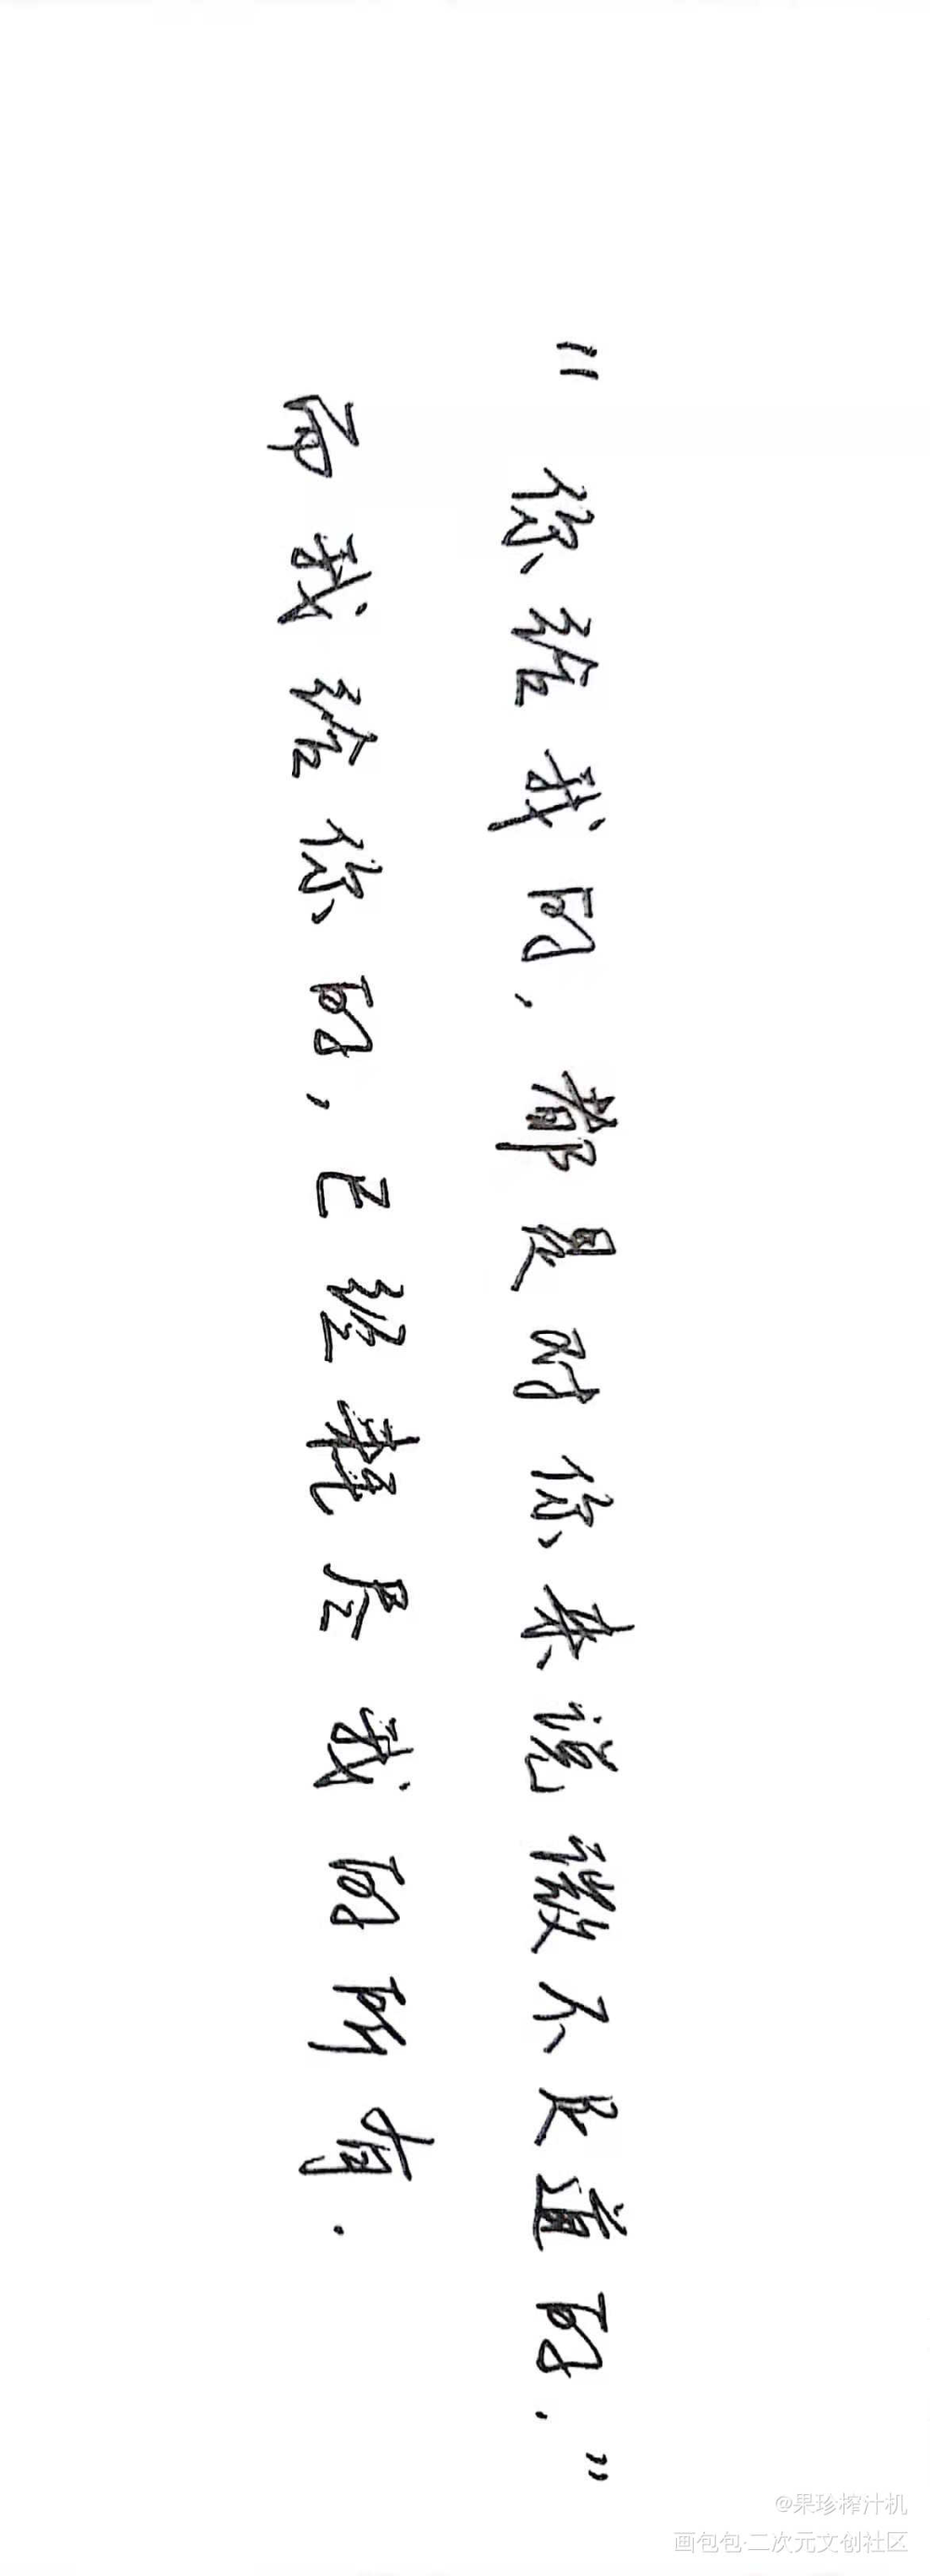 “你给我的，都是对你来说微不足道的．”
而我给你的，已经耗尽我的所有．
@果珍榨汁机
画包包·二次元文创社区